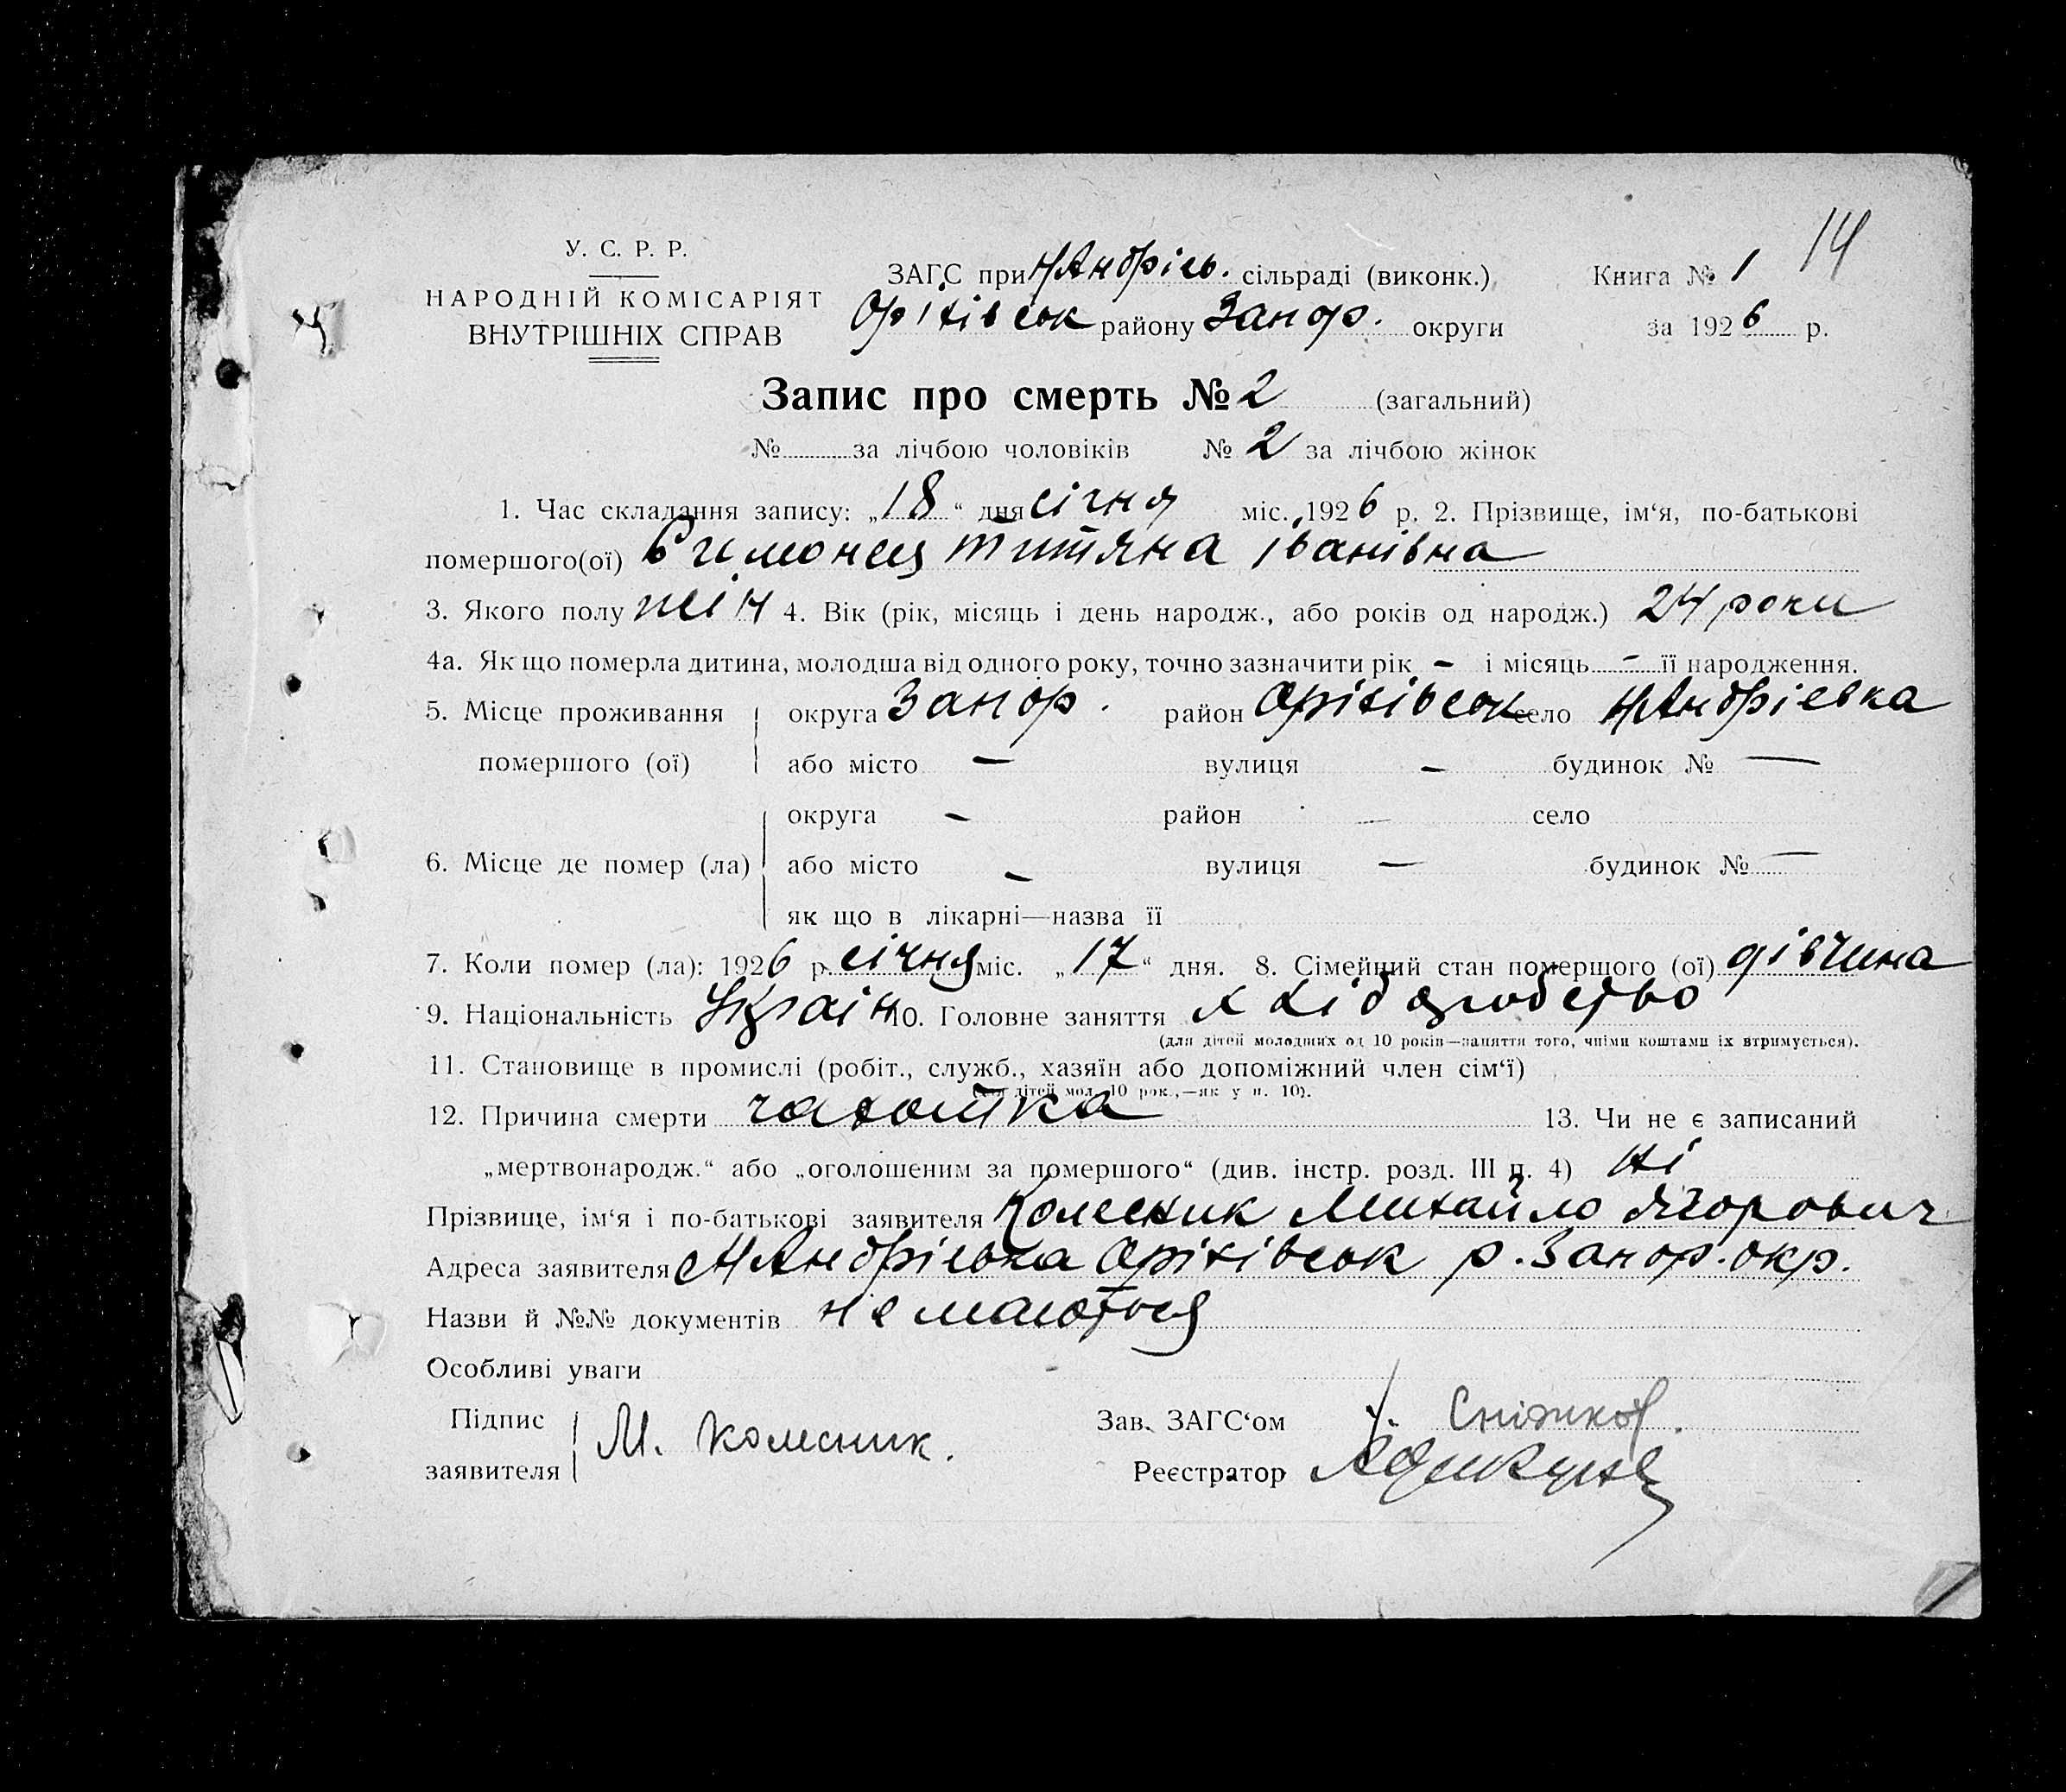 14
У. С. Р. Р.
НАРОДНІЙ КОМІСАРІЯТ
ВНУТРІШНІХ СПРАВ
ЗАГС при НАндрієв. сільраді (виконк.)
Оріхівськ району Запор. округи
Книга № 1
за 1926 р.
Запис про смерть № 2 (загальний)
№ за лічбою чоловіків № 2 за лічбою жінок
1. Час складання запису: „18“ дня січня міс. 1926 р. 2. Прізвище, ім‘я, по-батькові
помершого(ої) Симонец Титяна Іванівна
3. Якого полу жін 4. Вік (рік, місяць і день народж., або років од народж.) 24 роки
4а. Як що померла дитина, молодша від одного року, точно зазначити рік – і місяць – її народження.
5. Місце проживання округа Запор. район Оріхівськ село НАндріевка
помершого (ої) або місто — вулиця – будинок № —
округа – район — село
6. Місце де помер (ла) або місто – вулиця — будинок № —
як що в лікарні—назва її
7. Коли помер (ла): 1926 р. січня міс. „17“ дня. 8. Сімейний стан помершого (ої) дівчина
9. Національність Украін 10. Головне заняття хлібаробство
(для дітей молодших од 10 років—заняття того, чиїми коштами їх втримується).
11. Становище в промислі (робіт., служб., хазяїн або допоміжний член сім‘ї)
дітей мол. 10 рок.,—як у п. 10).
12. Причина смерти чахотка 13. Чи не є записаний
„мертвонародж.“ або „оголошеним за помершого“ (див. інстр. розд. III п. 4) Ні
Прізвище, ім‘я і по-батькові заявителя Колесник Михайло Ягорович
Адреса заявителя НАндріевка Оріхівськ р. Запор. окр.
Назви й №№ документів не маються
Особливі уваги –
Підпис М. Колесник. Зав. ЗАГС‘ом Сніжков
заявителя Реєстратор